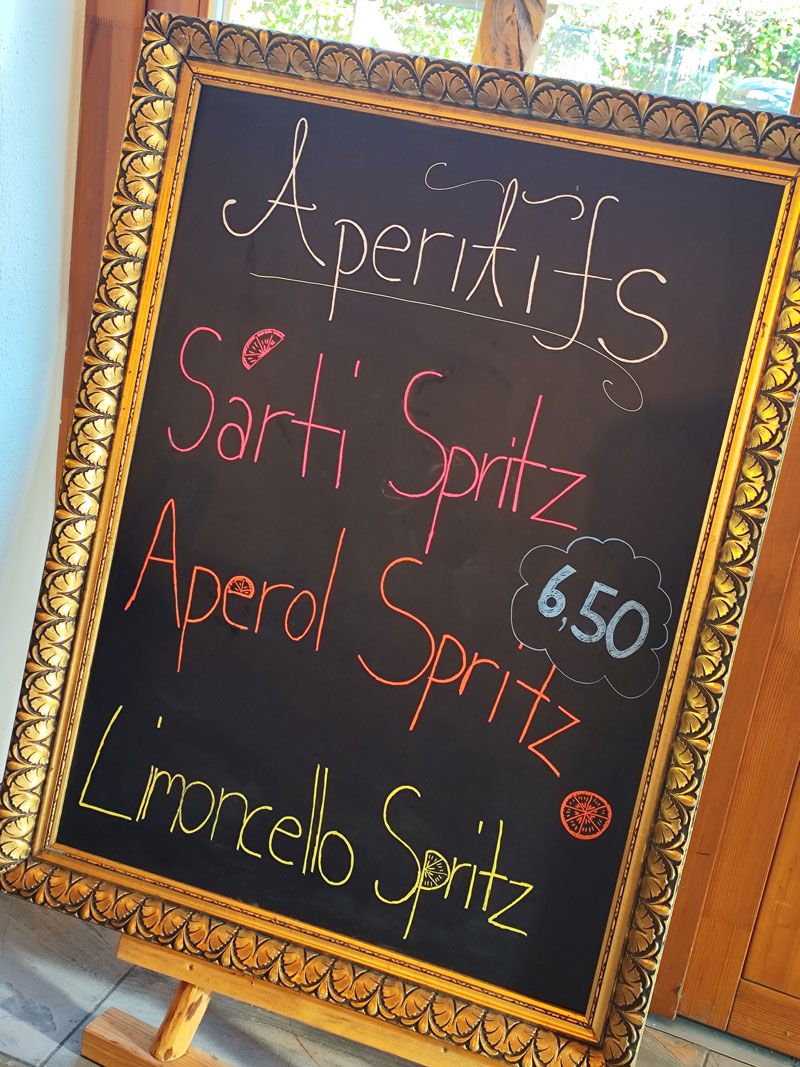 Aperitifs
Sarti Spritz
Aperol Spritz
6,50
Limoncello Spritz